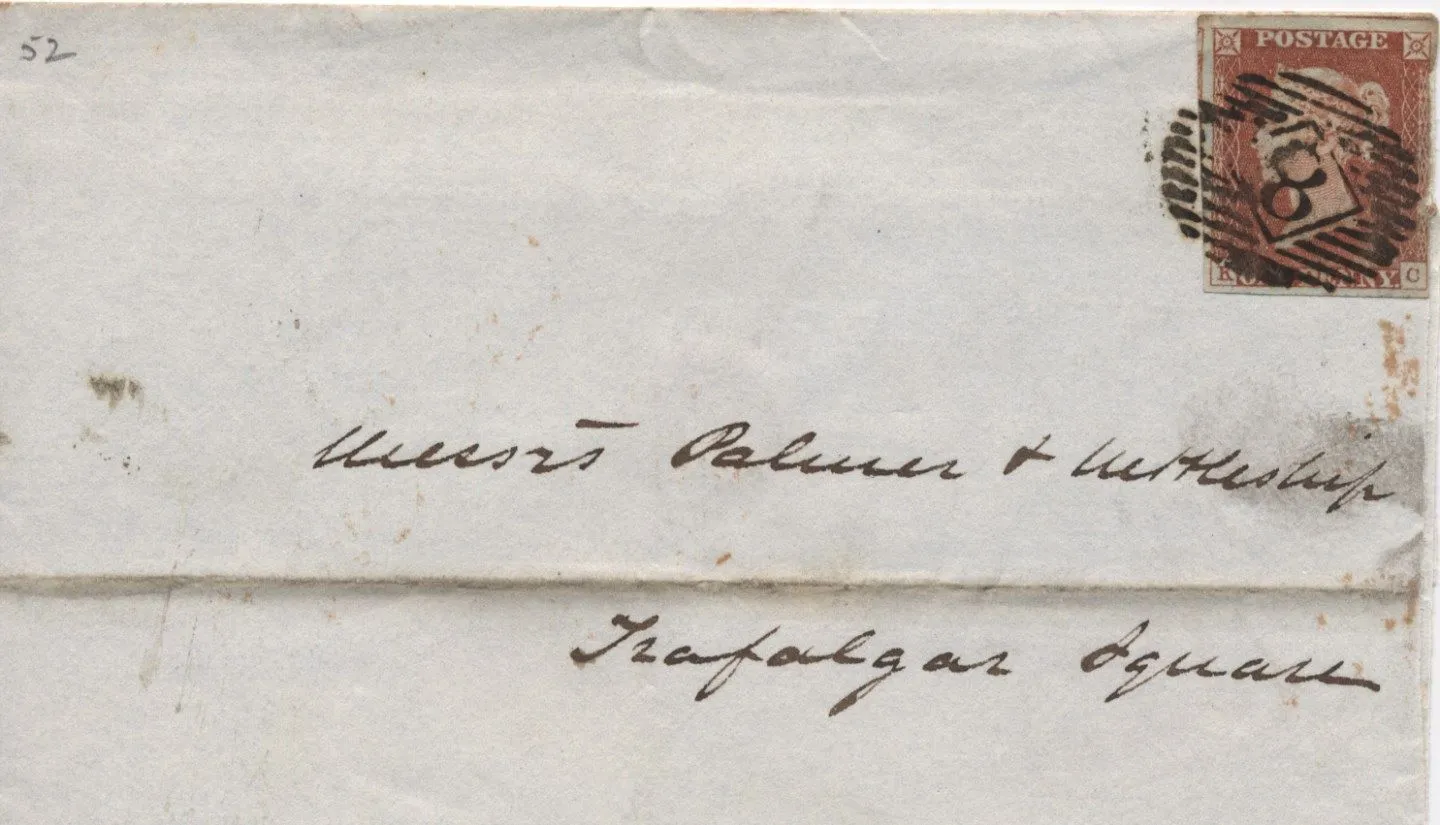 52
POSTAGE
8
K C
Messrs Palmer & Nettleship
Trafalgar Square